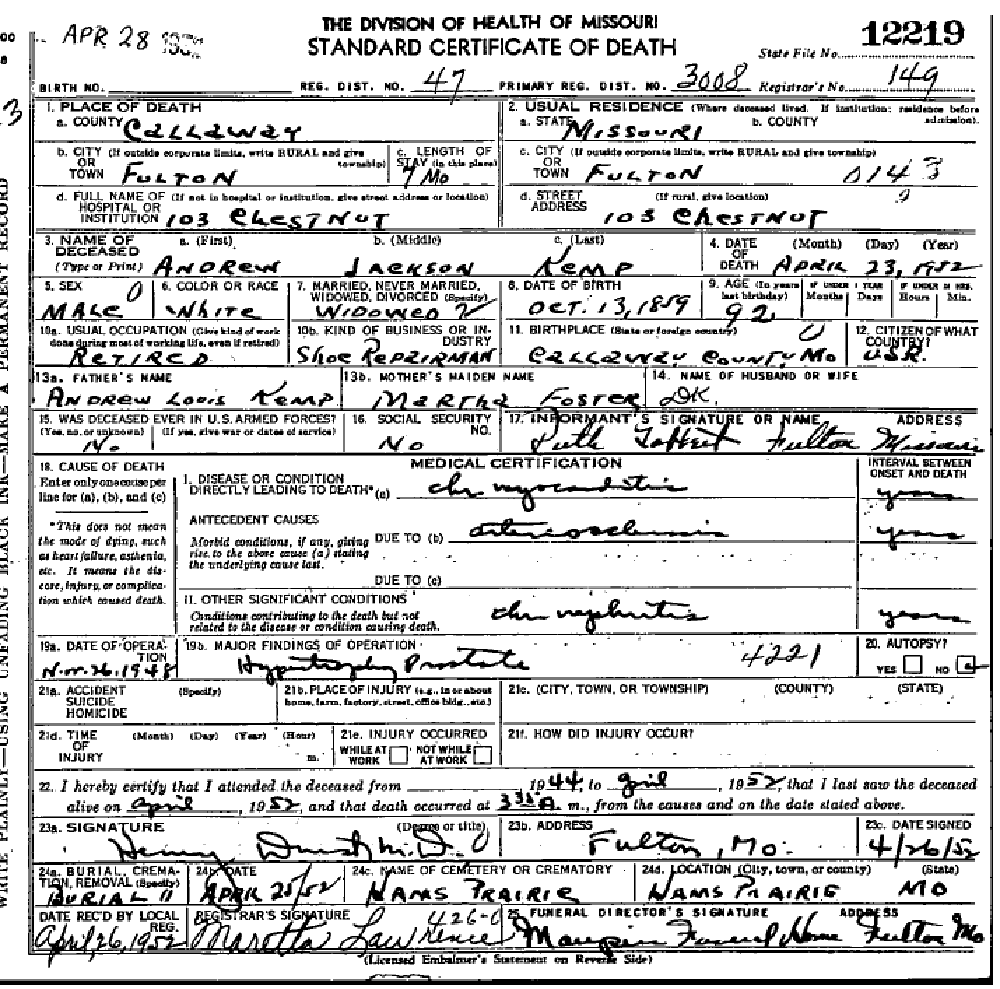 APR 28 1952
THE DIVISION OF HEALTH OF MISSOURI
STANDARD CERTIFICATE OF DEATH
State File No. 12219
BIRTH NO. REG. DIST. NO. 47 PRIMARY REG. DIST. NO. 3008 Registrar's No. 149
1. PLACE OF DEATH
a. COUNTY CALLAWAY
2. USUAL RESIDENCE (Where deceased lived. If institution: residence before admission).
a. STATE MISSOURI b. COUNTY
b. CITY (If outside corporate limits, write RURAL and give township)
OR TOWN FULTON
c. LENGTH OF STAY (in this place)
7 Mo
c. CITY (If outside corporate limits, write RURAL and give township)
OR TOWN FULTON 0143
9
d. FULL NAME OF (If not in hospital or institution, give street address or location)
HOSPITAL OR INSTITUTION 103 CHESTNUT
d. STREET ADDRESS (If rural, give location)
103 CHESTNUT
3. NAME OF DECEASED (Type or Print)
a. (First) b. (Middle) c. (Last)
ANDREW JACKSON KEMP
4. DATE OF DEATH (Month) (Day) (Year)
APRIL 23, 1952
5. SEX
MALE 0
6. COLOR OR RACE
WHITE
7. MARRIED, NEVER MARRIED, WIDOWED, DIVORCED (Specify)
WIDOWED 2
8. DATE OF BIRTH
OCT. 13, 1859
9. AGE (In years last birthday)
92
IF UNDER 1 YEAR Months Days
IF UNDER 24 HRS. Hours Min.
10a. USUAL OCCUPATION (Give kind of work done during most of working life, even if retired)
RETIRED
10b. KIND OF BUSINESS OR INDUSTRY
SHOE REPAIRMAN
11. BIRTHPLACE (State or foreign country)
CALLAWAY COUNTY MO 0
12. CITIZEN OF WHAT COUNTRY?
USA.
13a. FATHER'S NAME
ANDREW LOUIS KEMP
13b. MOTHER'S MAIDEN NAME
MARTHA FOSTER
14. NAME OF HUSBAND OR WIFE
DK.
15. WAS DECEASED EVER IN U.S. ARMED FORCES?
(Yes, no, or unknown) (If yes, give war or dates of service)
No
16. SOCIAL SECURITY NO.
No
17. INFORMANT'S SIGNATURE OR NAME ADDRESS
Ruth Fulton Missouri
18. CAUSE OF DEATH
Enter only one cause per line for (a), (b), and (c)
*This does not mean the mode of dying, such as heart failure, asthenia, etc. It means the disease, injury, or complication which caused death.
MEDICAL CERTIFICATION
INTERVAL BETWEEN ONSET AND DEATH
I. DISEASE OR CONDITION DIRECTLY LEADING TO DEATH* (a) chr myocarditis years
ANTECEDENT CAUSES
Morbid conditions, if any, giving rise to the above cause (a) stating the underlying cause last.
DUE TO (b) arteriosclerosis years
DUE TO (c)
II. OTHER SIGNIFICANT CONDITIONS
Conditions contributing to the death but not related to the disease or condition causing death.
chr nephritis years
19a. DATE OF OPERATION
Nov. 26, 1948
19b. MAJOR FINDINGS OF OPERATION
Hypertrophy Prostate 4221
20. AUTOPSY?
YES NO
21a. ACCIDENT SUICIDE HOMICIDE (Specify)
21b. PLACE OF INJURY (e.g., in or about home, farm, factory, street, office bldg., etc.)
21c. (CITY, TOWN, OR TOWNSHIP) (COUNTY) (STATE)
21d. TIME OF INJURY (Month) (Day) (Year) (Hour) m.
21e. INJURY OCCURRED
WHILE AT WORK NOT WHILE AT WORK
21f. HOW DID INJURY OCCUR?
22. I hereby certify that I attended the deceased from 1944, to April, 1952, that I last saw the deceased
alive on April, 1952, and that death occurred at 3 A m., from the causes and on the date stated above.
23a. SIGNATURE (Degree or title)
Henry M.D. 0
23b. ADDRESS
Fulton, Mo.
23c. DATE SIGNED
4/26/52
24a. BURIAL, CREMATION, REMOVAL (Specify)
BURIAL 11
24b. DATE
APRIL 25/52
24c. NAME OF CEMETERY OR CREMATORY
HAMS PRAIRIE
24d. LOCATION (City, town, or county) (State)
HAMS PRAIRIE MO
DATE REC'D BY LOCAL REG.
April 26, 1952
REGISTRAR'S SIGNATURE 426-0
Maretta Lawrence
25. FUNERAL DIRECTOR'S SIGNATURE ADDRESS
Maupin Funeral Home Fulton Mo
(Licensed Embalmer's Statement on Reverse Side)
WRITE PLAINLY—USING UNFADING BLACK INK—MAKE A PERMANENT RECORD